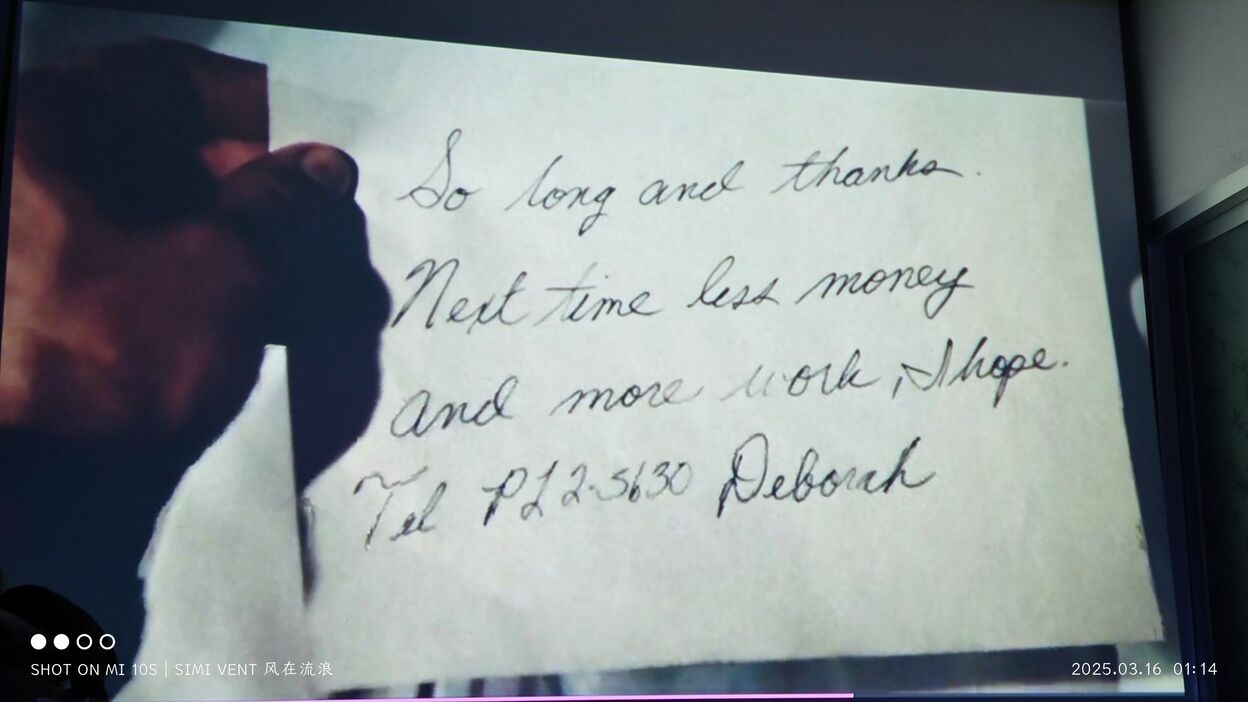 So long and thanks.
Next time less money
and more work, I hope.
Tel PL2-5630 Deborah
SHOT ON MI 10S | SIMI VENT 风在流浪
2025.03.16 01:14